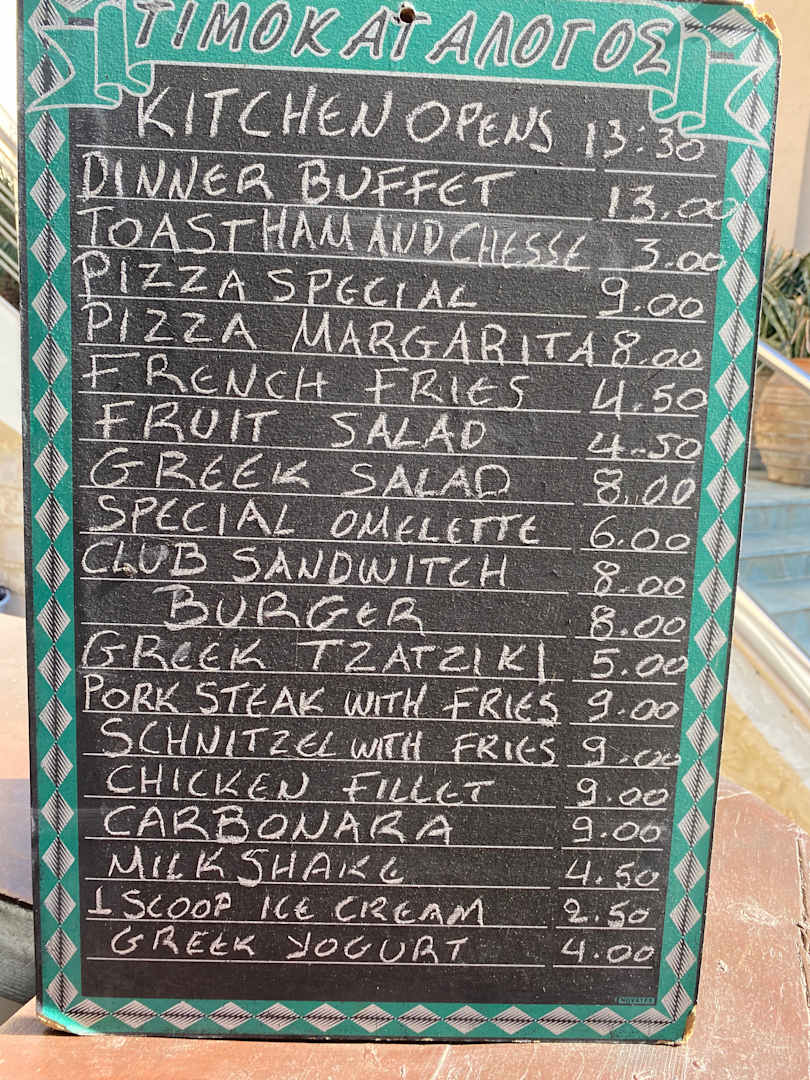 ΤΙΜΟΚΑΤΑΛΟΓΟΣ
KITCHEN OPENS 13:30
DINNER BUFFET 13.00
TOAST HAM AND CHESSE 3.00
PIZZA SPECIAL 9.00
PIZZA MARGARITA 8.00
FRENCH FRIES 4.50
FRUIT SALAD 4.50
GREEK SALAD 8.00
SPECIAL OMELETTE 6.00
CLUB SANDWITCH 8.00
BURGER 8.00
GREEK TZATZIKI 5.00
PORK STEAK WITH FRIES 9.00
SCHNITZEL WITH FRIES 9.00
CHICKEN FILLET 9.00
CARBONARA 9.00
MILKSHAKE 4.50
1 SCOOP ICE CREAM 2.50
GREEK YOGURT 4.00